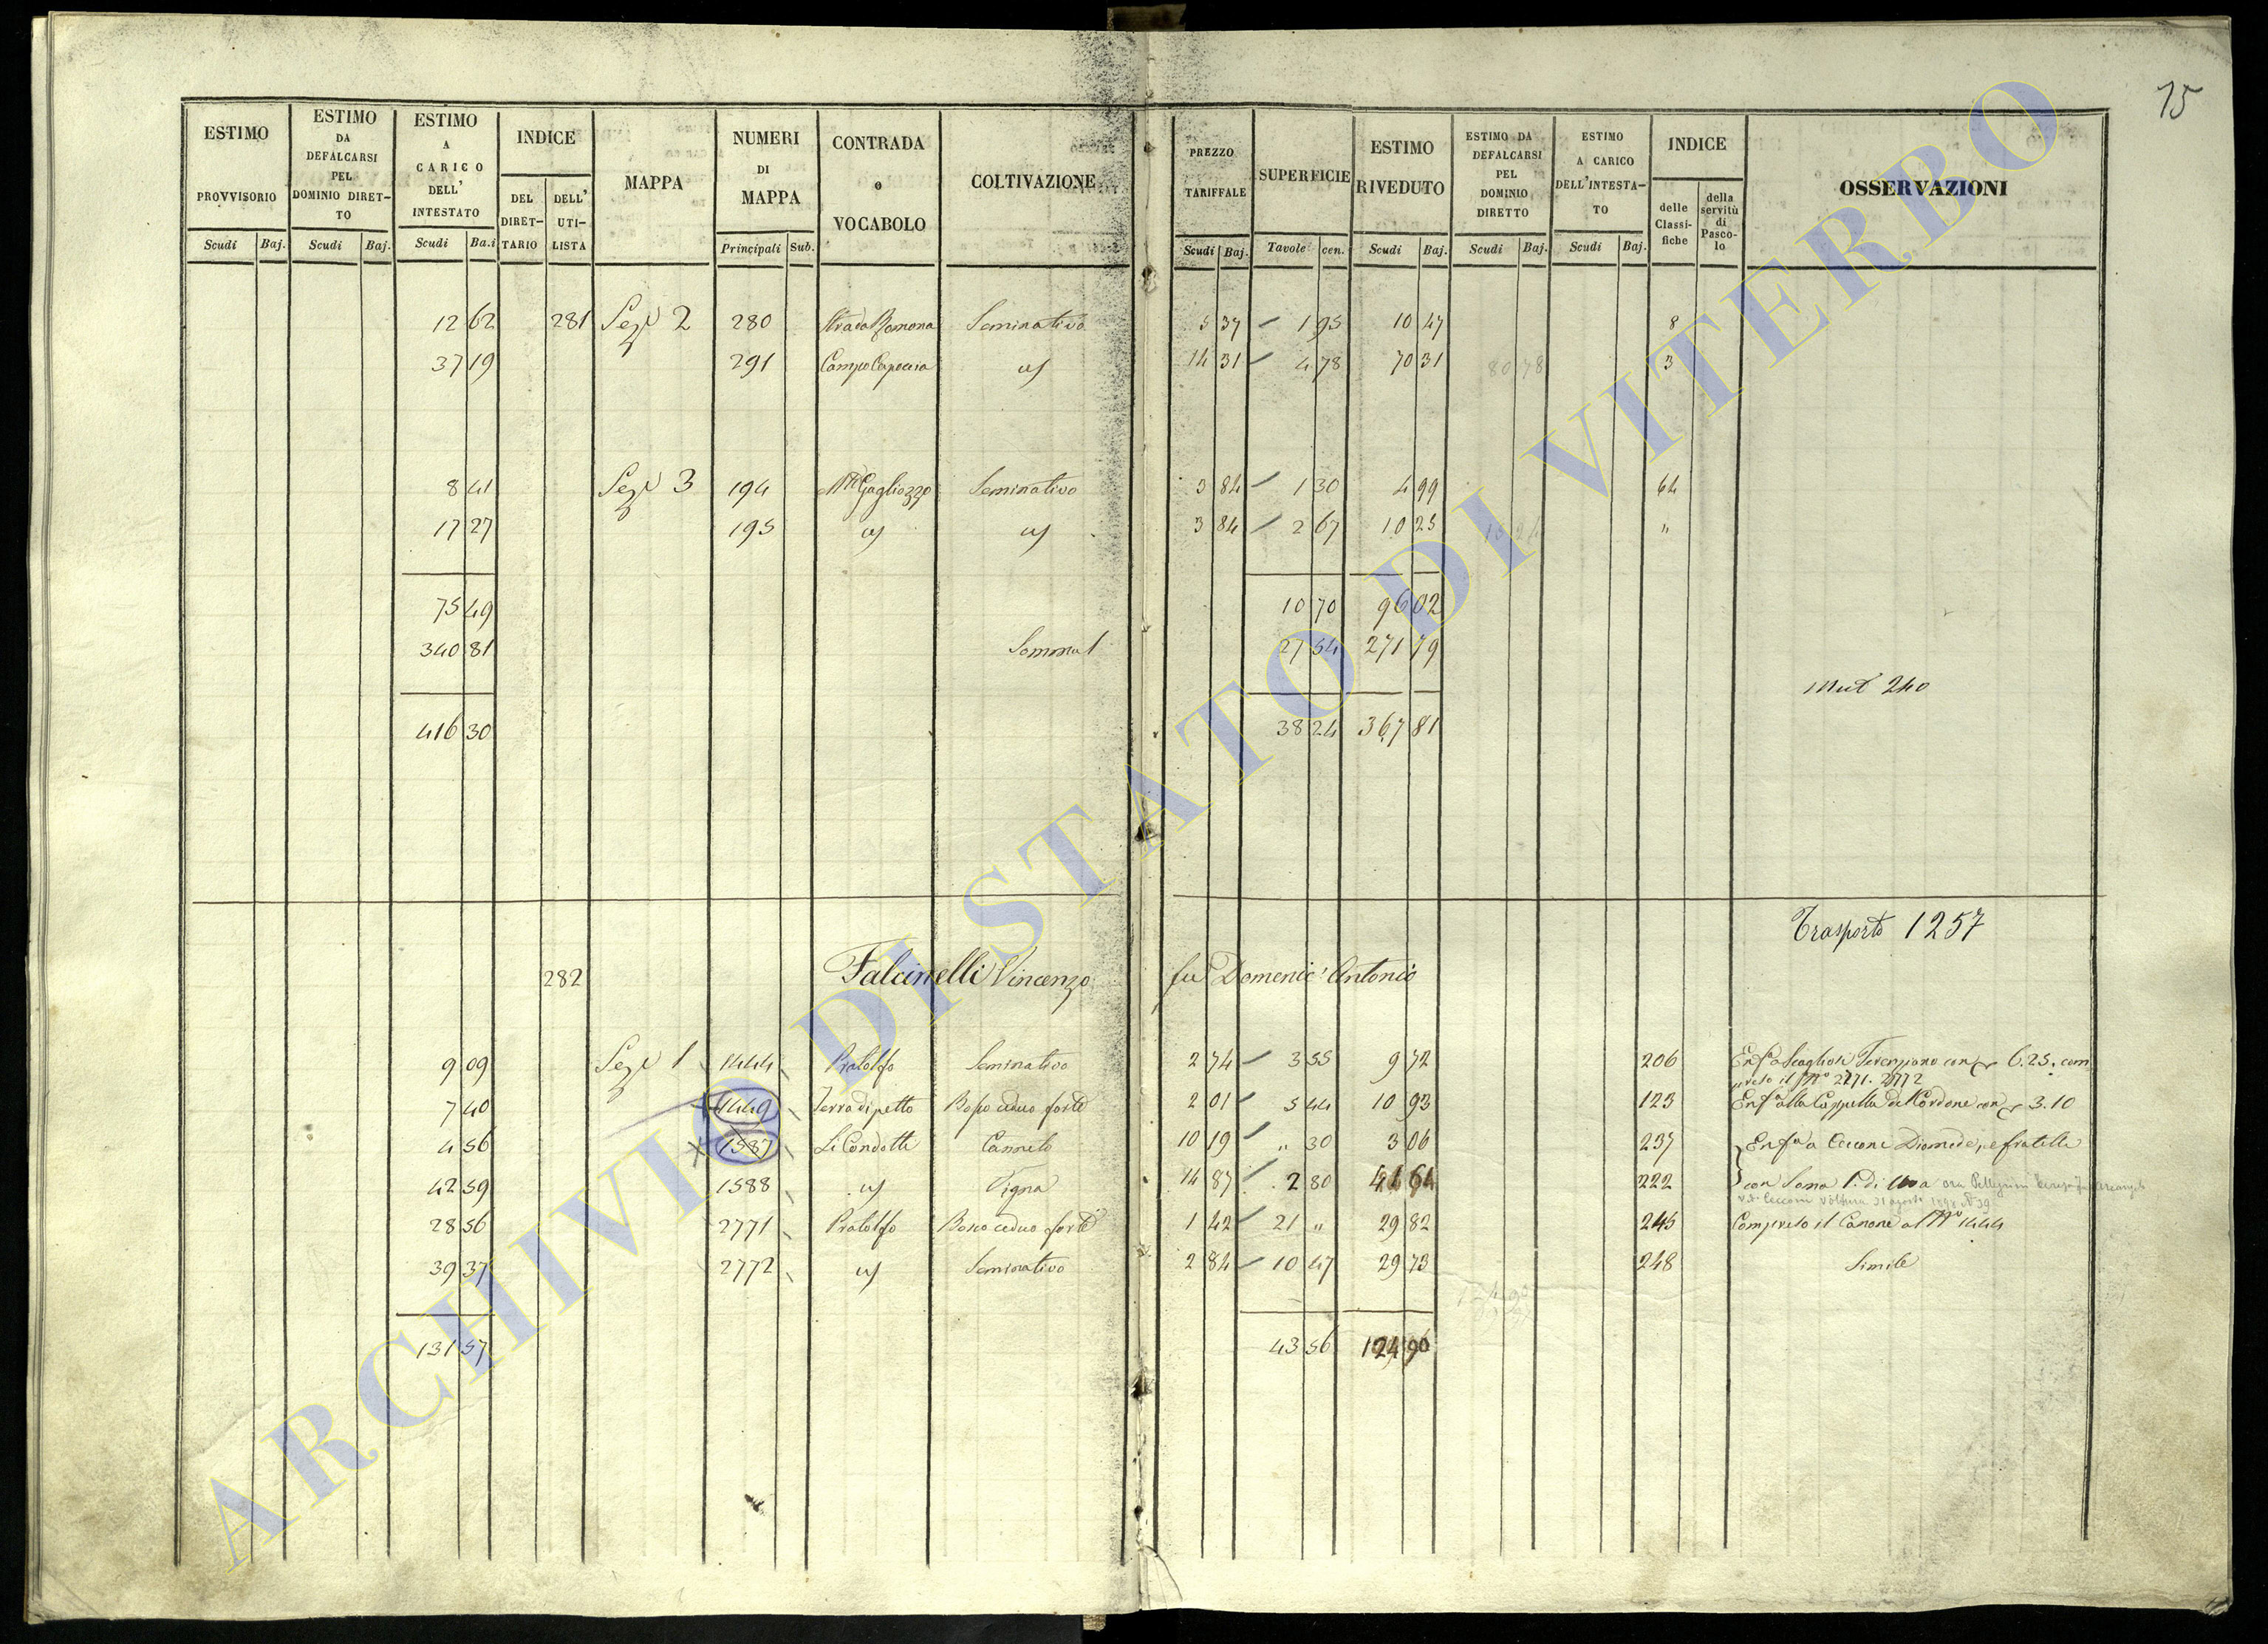 15
ESTIMO PROVVISORIO Scudi Baj.
ESTIMO DA DEFALCARSI PEL DOMINIO DIRETTO Scudi Baj.
ESTIMO A CARICO DELL' INTESTATO Scudi Ba.i
INDICE DEL DIRETTARIO DELL' UTILISTA
MAPPA
NUMERI DI MAPPA Principali Sub.
CONTRADA o VOCABOLO
COLTIVAZIONE
PREZZO TARIFFALE Scudi Baj.
SUPERFICIE Tavole cen.
ESTIMO RIVEDUTO Scudi Baj.
ESTIMO DA DEFALCARSI PEL DOMINIO DIRETTO Scudi Baj.
ESTIMO A CARICO DELL'INTESTATO Scudi Baj.
INDICE delle Classifiche della servitù di Pascolo
OSSERVAZIONI
12 62 281 Sez.e 2 280 Strada Romana Seminativo 5 37 1 95 10 47 8
37 19 291 Campo Capoccia id 14 31 4 78 70 31 80 78 3
8 41 Sez.e 3 194 Gagliozzo Seminativo 3 84 1 30 4 99 64
17 27 195 id id 3 84 2 67 10 25 "
75 49 10 70 96 02
340 81 Somma 27 54 271 79
Mut 240
416 30 38 24 367 81
Trasporto 1257
282 Falcinelli Vincenzo fu Domenic'Antonio
9 09 Sez.e 1 1444 Pratolfo Seminativo 2 74 3 55 9 72 206 Enf.a a Scagliosi Terenziano con 6.25. com
preso il N.o 2771. 2772
7 40 1449 Terra di petto Bosco ceduo forte 2 01 5 44 10 93 123 Enf.a alla Cappella del Cordone con 3.10
4 56 1587 Li Condotti Canneto 10 19 " 30 3 06 237 Enf.a a Ceccone Diomede, e fratelli
42 59 1588 id Vigna 14 87 2 80 41 64 222 ora Pellegrini
28 56 2771 Pratolfo Bosco ceduo forte 1 42 21 " 29 82 245 Compreso il Canone al N.o 1444
39 37 2772 id Seminativo 2 84 10 47 29 73 248 Simile
131 57 43 56 124 90
ARCHIVIO DI STATO DI VITERBO